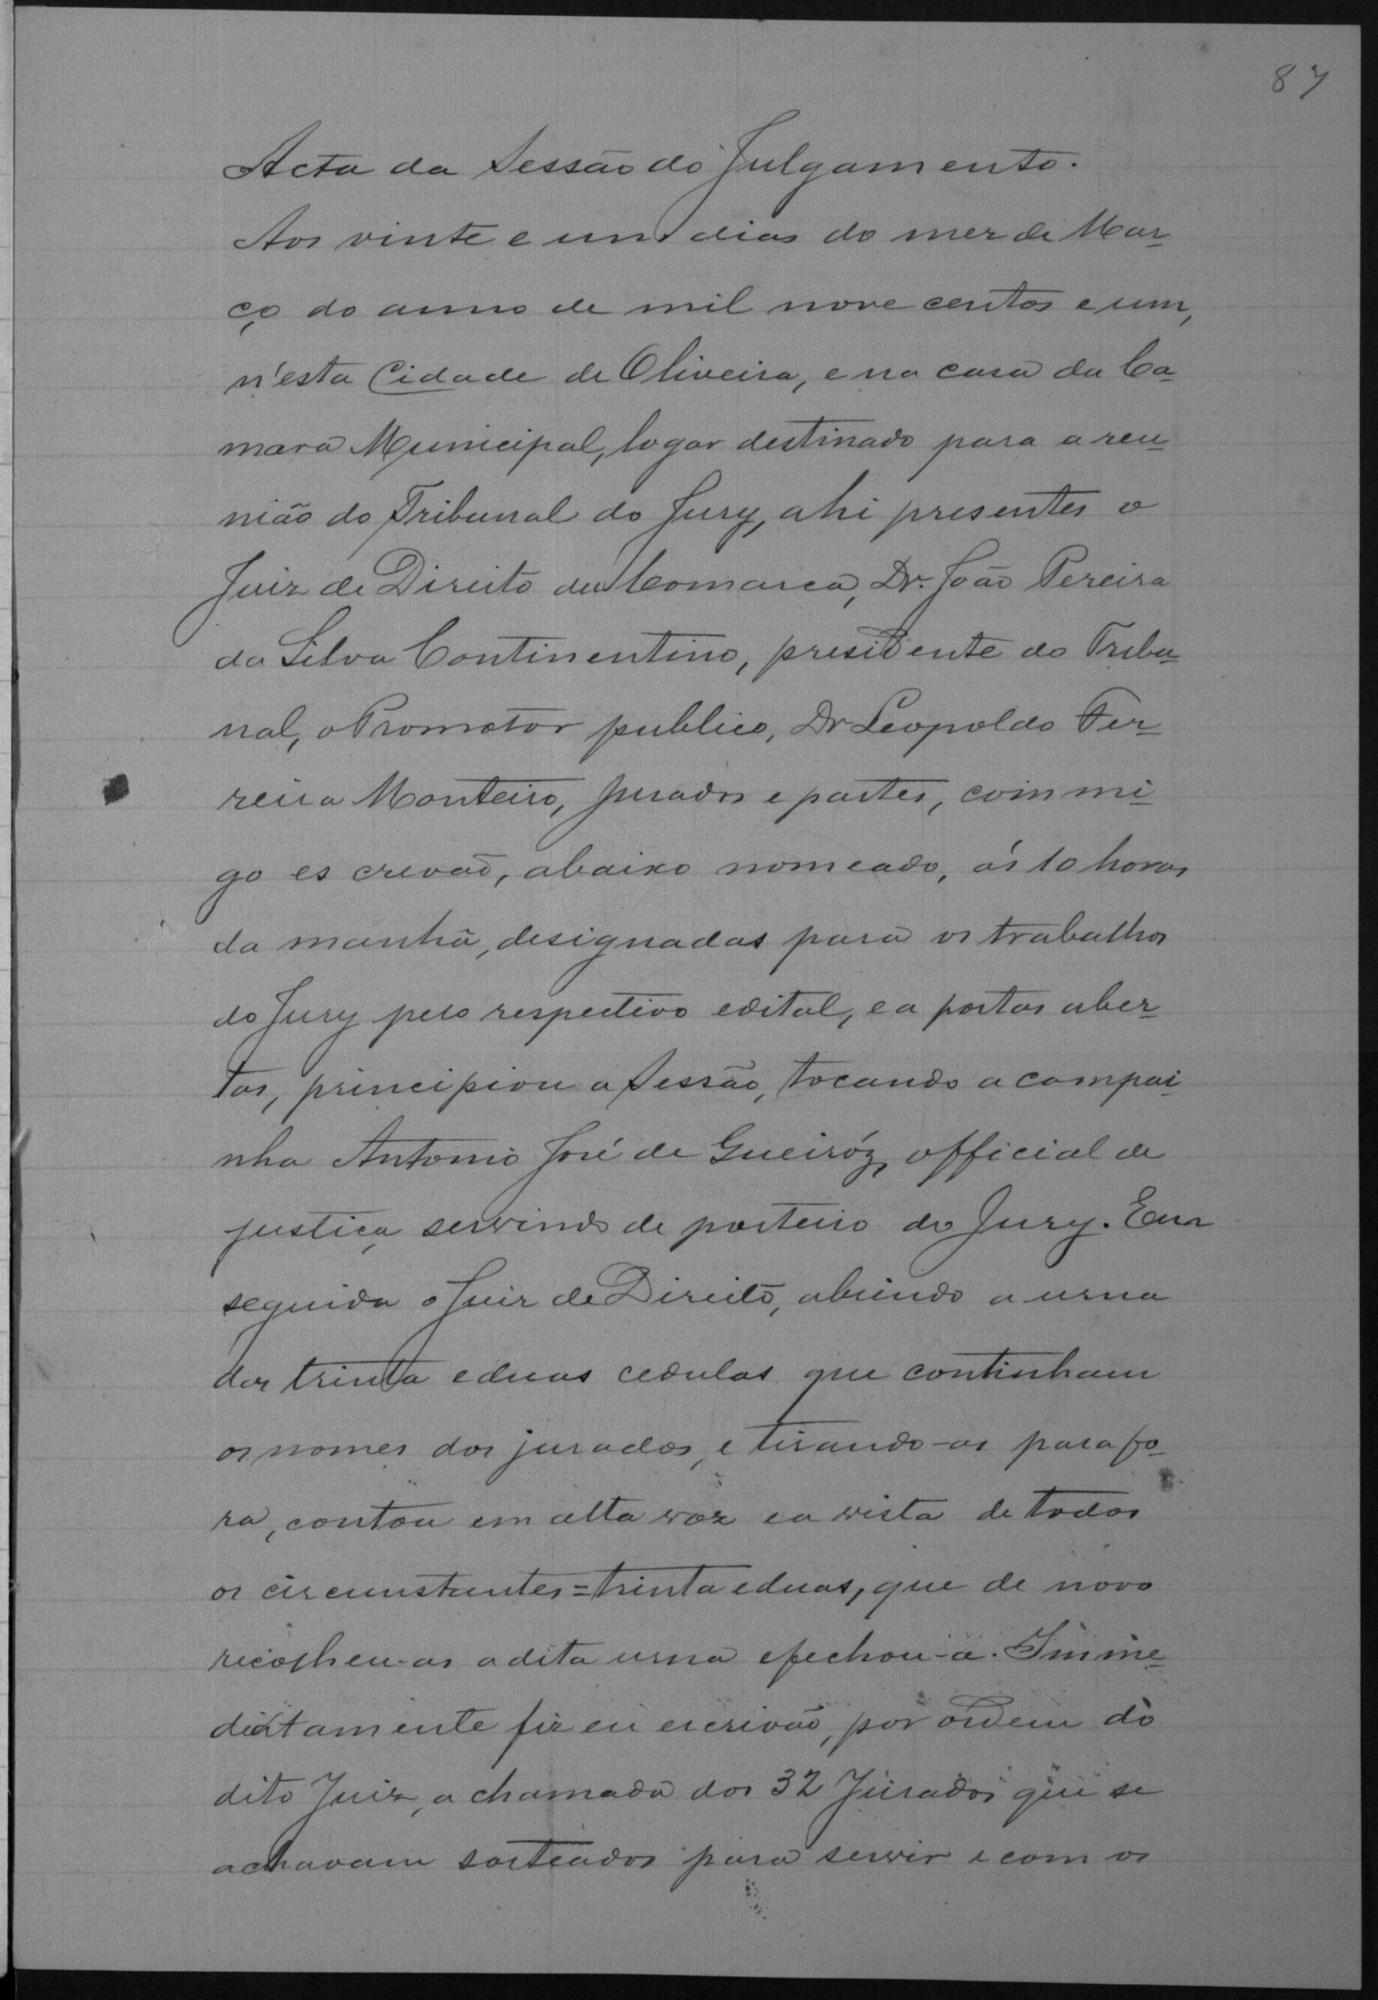 87
Acta da Sessão do Julgamento.
Aos vinte e um dias do mez de Mar-
ço do anno de mil nove centos e um,
n'esta Cidade de Oliveira, e na casa da Ca-
mara Municipal, logar destinado para a reu-
nião do Tribunal do Jury, ahi presentes o
Juiz de Direito da Comarca, Dr. João Pereira
da Silva Continentino, presidente do Tribu-
nal, o Promotor publico, Dr Leopoldo Fer-
reira Monteiro, Jurados e partes, commi-
go escrevão, abaixo nomeado, ás 10 horas
da manhã, designadas para os trabalhos
do Jury pelo respectivo edital, e a portas aber-
tas, principiou a Sessão, tocando a campai-
nha Antonio José de Gueiróz, official de
justiça servindo de porteiro do Jury. Em
seguida o Juiz de Direito, abrindo a urna
das trinta e duas cedulas que continham
os nomes dos jurados, e tirando-as para fo-
ra, contou em alta voz e a vista de todos
os circumstantes = trinta e duas, que de novo
recolheu-as a dita urna e fechou-a. Imme-
diatamente fiz eu escrivão, por ordem do
dito Juiz, a chamada dos 32 Jurados que se
achavam sorteados para servir e com os